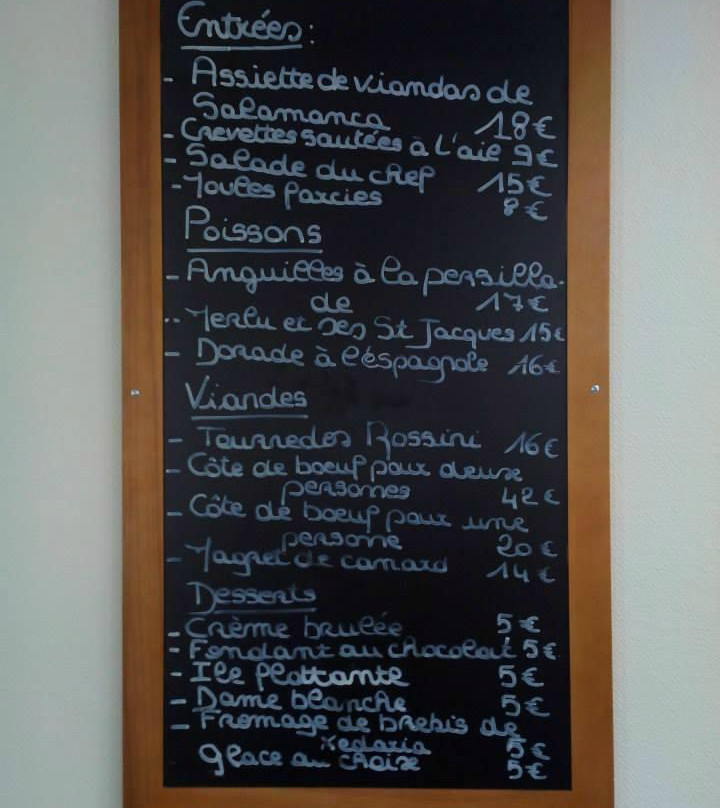 Entrées :
- Assiette de viandas de
Salamanca 18€
- Crevettes sautées à l'ail 9€
- Salade du chef 15€
- Moules farcies 8€
Poissons
- Anguilles à la persilla-
de 17€
- Merlu et ses St Jacques 15€
- Dorade à l'éspagnole 16€
Viandes
- Tournedos Rossini 16€
- Côte de boeuf pour deux
personnes 42€
- Côte de boeuf pour une
personne 20€
- Magret de canard 14€
Desserts
- Crème brulée 5€
- Fondant au chocolat 5€
- Ile flottante 5€
- Dame blanche 5€
- Fromage de brebis de
Xedaria 5€
glace au choix 5€